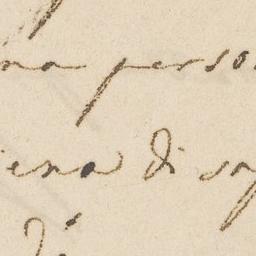 na perso
iena di sof